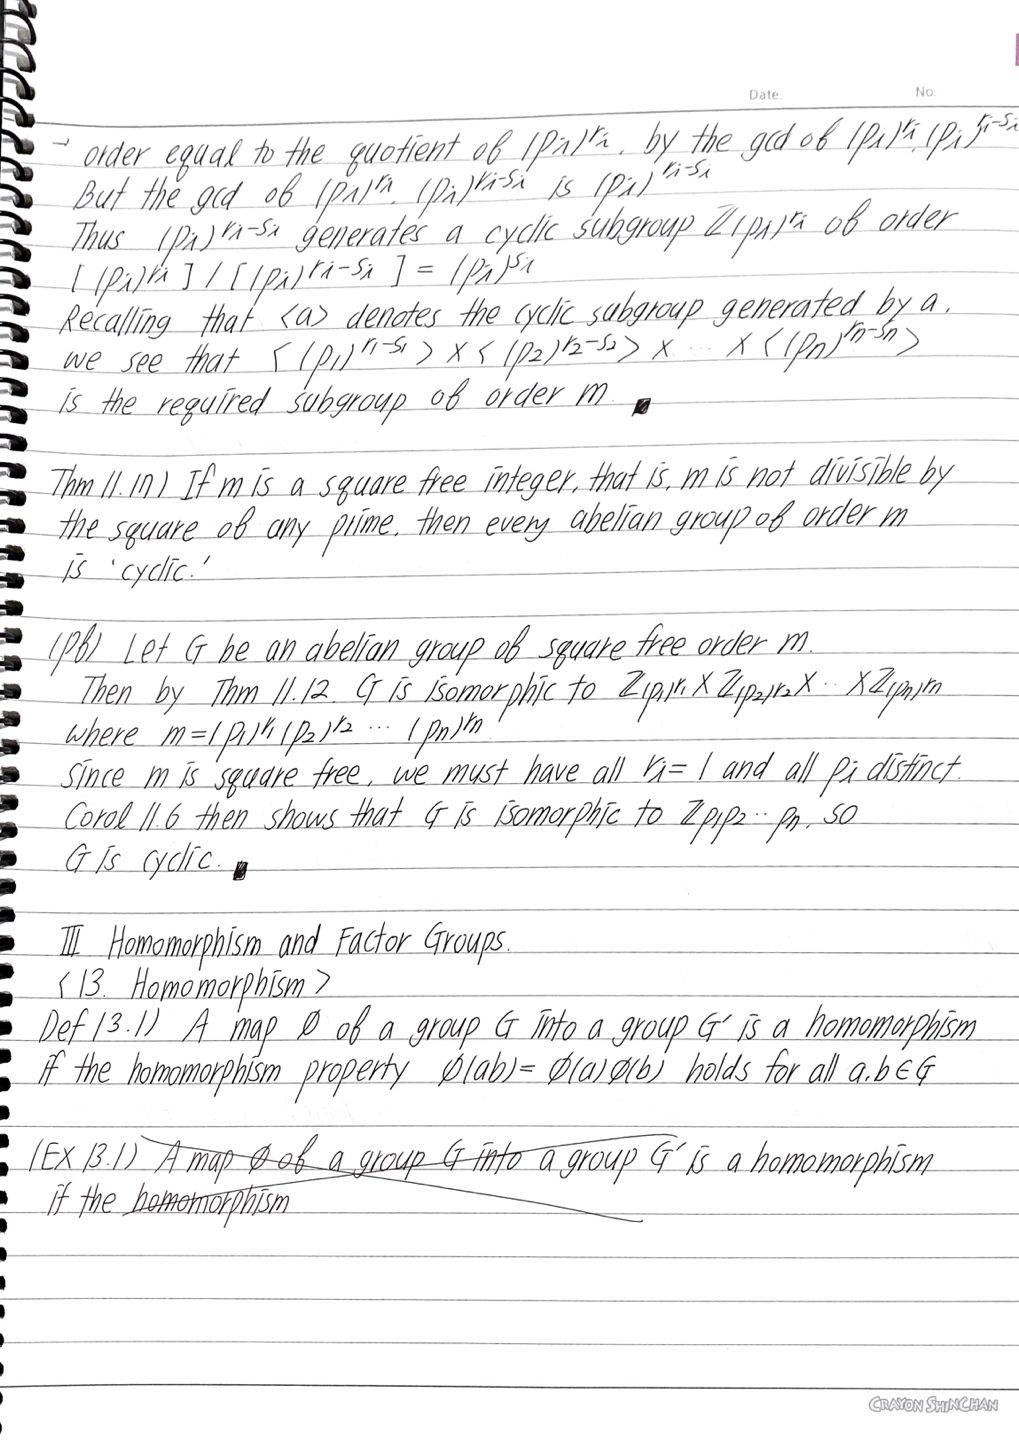 Date. No.
→ order equal to the quotient of (pᵢ)^rᵢ, by the gcd of (pᵢ)^rᵢ, (pᵢ)^rᵢ-sᵢ
But the gcd of (pᵢ)^rᵢ, (pᵢ)^rᵢ-sᵢ is (pᵢ)^rᵢ-sᵢ
Thus (pᵢ)^rᵢ-sᵢ generates a cyclic subgroup ℤ(pᵢ)^rᵢ of order
[(pᵢ)^rᵢ] / [(pᵢ)^rᵢ-sᵢ] = (pᵢ)^sᵢ
Recalling that <a> denotes the cyclic subgroup generated by a,
we see that <(p₁)^r₁-s₁> × <(p₂)^r₂-s₂> × ⋯ × <(pₙ)^rₙ-sₙ>
is the required subgroup of order m. ■
Thm 11.17) If m is a square free integer, that is, m is not divisible by
the square of any prime, then every abelian group of order m
is 'cyclic.'
(pf) Let G be an abelian group of square free order m.
Then by Thm 11.12. G is isomorphic to ℤ(p₁)^r₁ × ℤ(p₂)^r₂ × ⋯ × ℤ(pₙ)^rₙ
where m = (p₁)^r₁ (p₂)^r₂ ⋯ (pₙ)^rₙ
Since m is square free, we must have all rᵢ = 1 and all pᵢ distinct.
Corol 11.6 then shows that G is isomorphic to ℤp₁p₂⋯pₙ, so
G is cyclic. ■
III Homomorphism and Factor Groups.
<13. Homomorphism>
Def 13.1) A map ø of a group G into a group G' is a homomorphism
if the homomorphism property ø(ab) = ø(a)ø(b) holds for all a,b∈G
(Ex 13.1) A map ø of a group G into a group G' is a homomorphism
if the homomorphism
CRAYON SHINCHAN